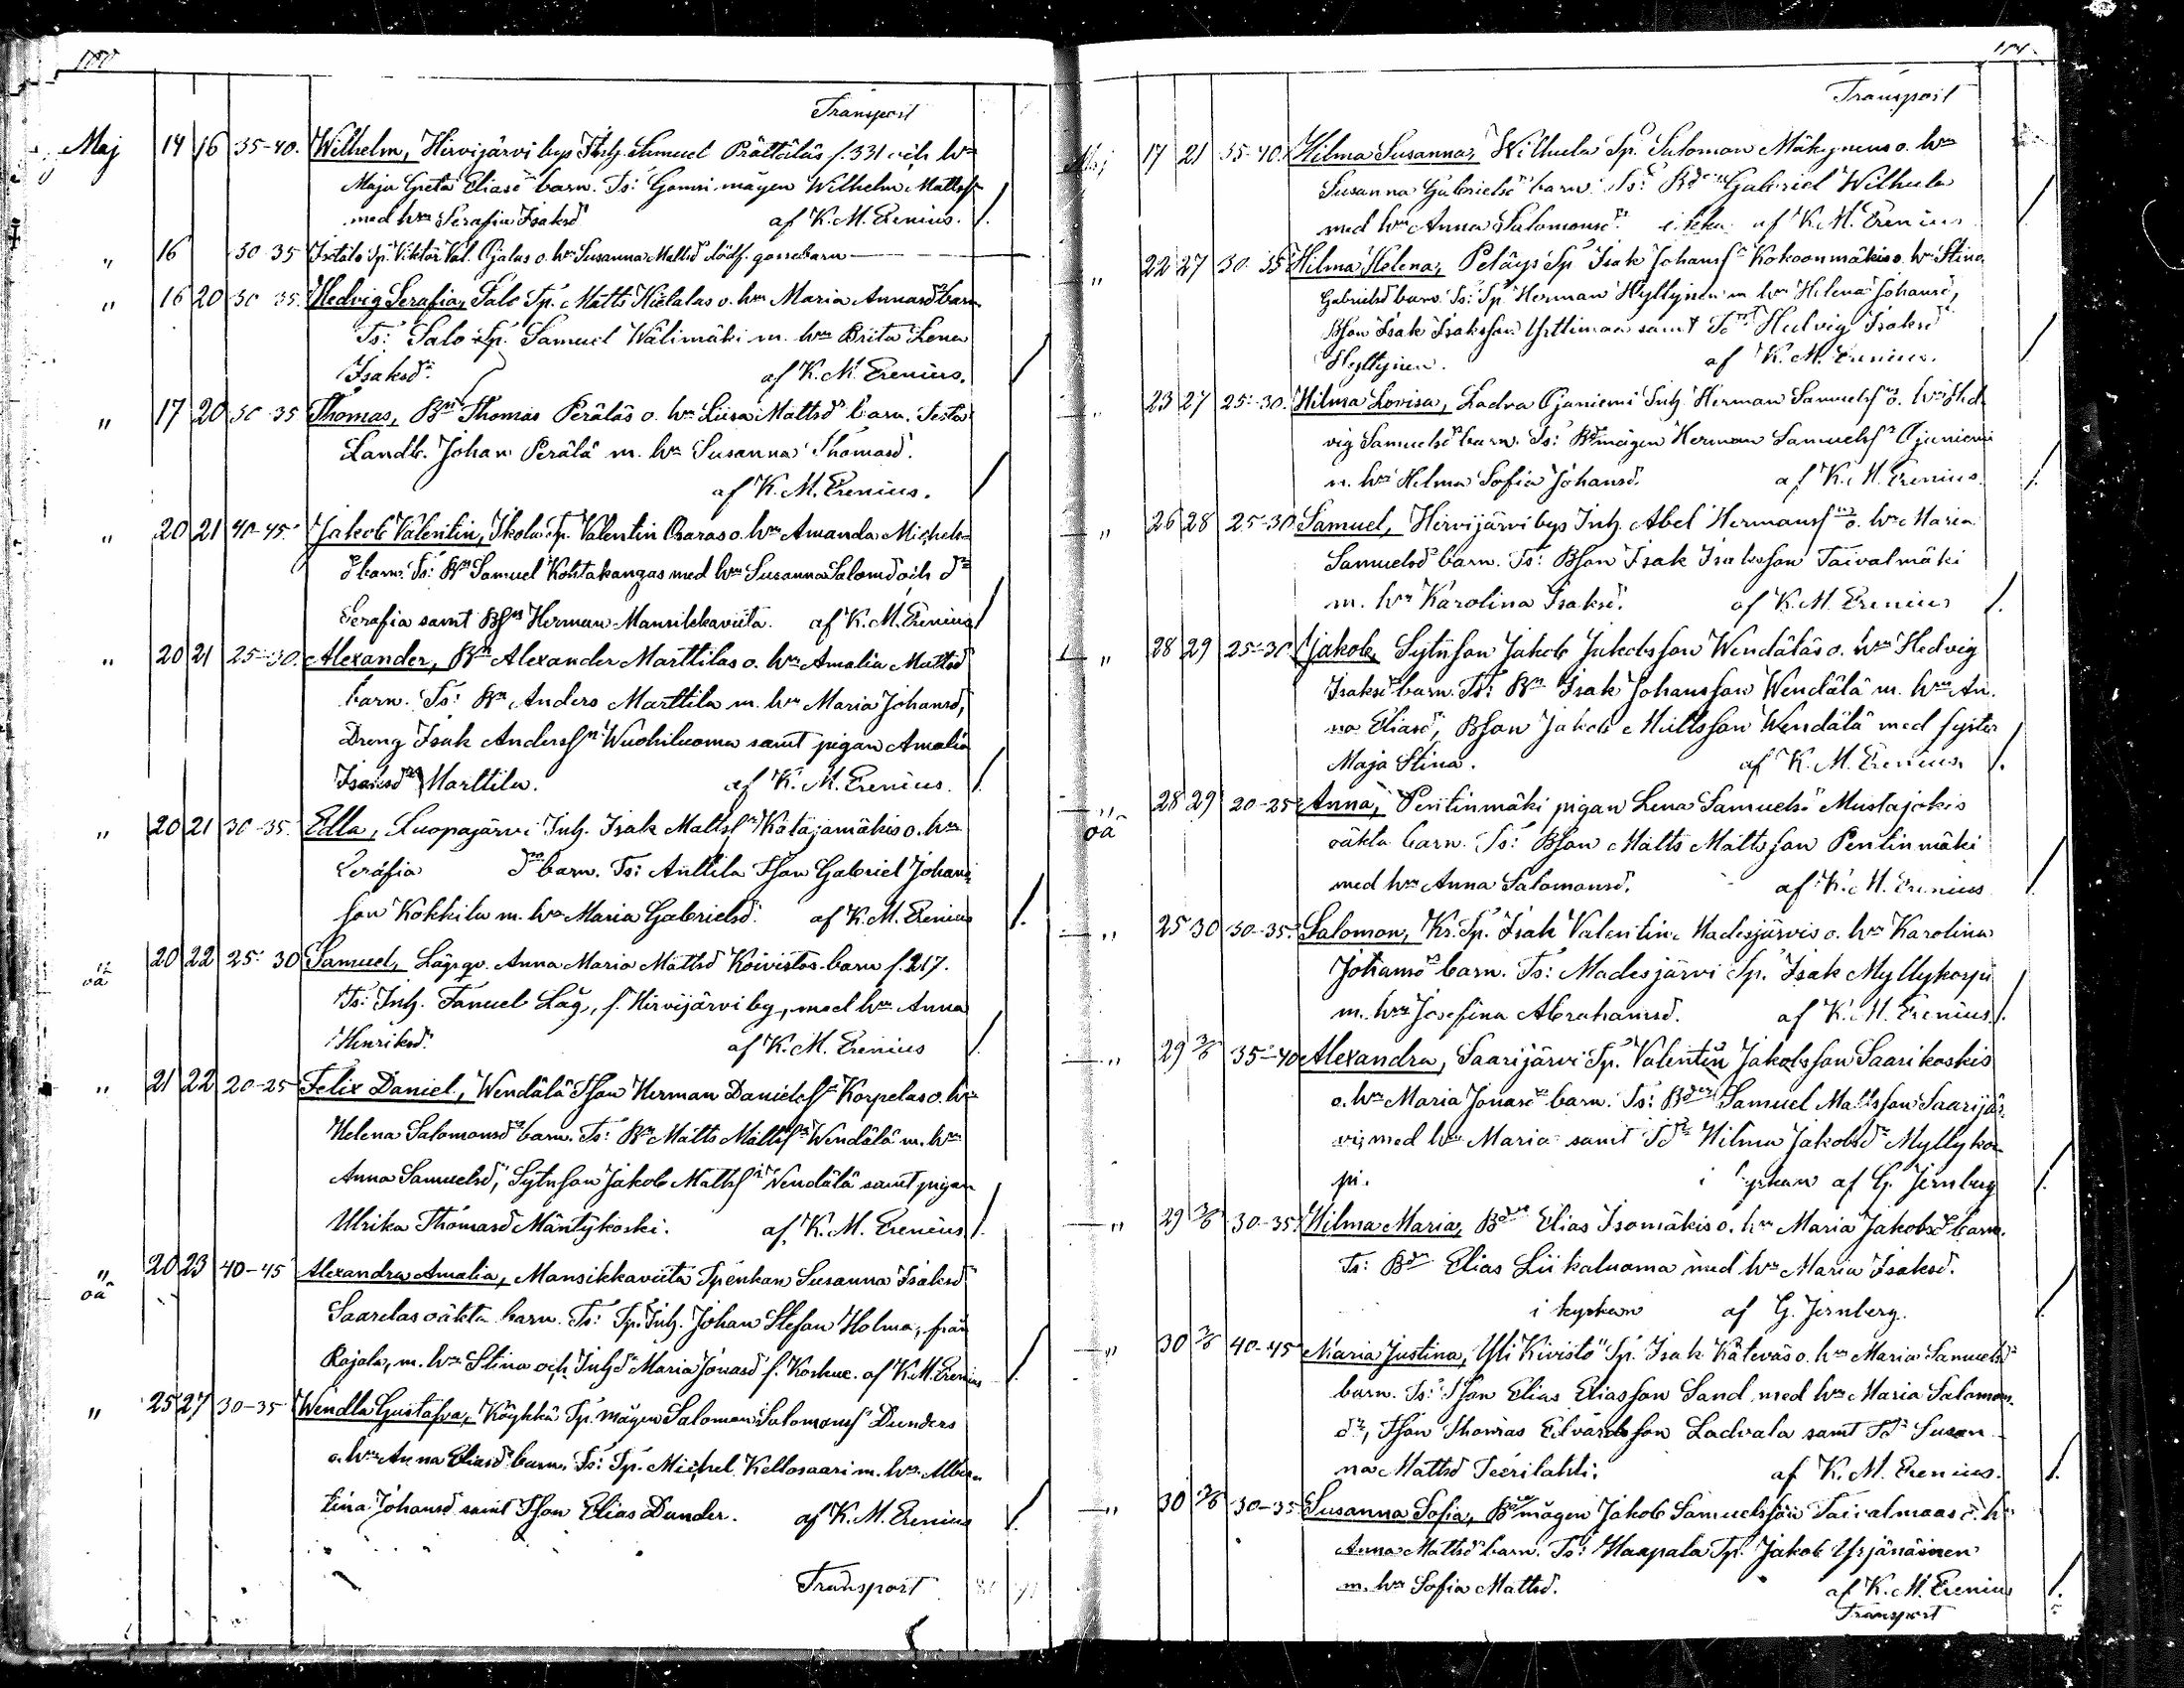 100
Transport
Maj 14 16 35-40. Wilhelm, Hirvijärvi bys Inh. Samuel Prättäläs f. 331 och hn
Maja Greta Eliasdn barn. Ts: Gamri mågen Wilhelm Mattsf
med hn Serafia Isaksd af K. M. Erenius.
" 16 30-35 Isotalo Tp. Viktor Val. Ojalas o. hn Susanna Mattsd dödf. gossebarn
" 16 20 30-35. Hedvig Serafia, Salo Tp. Matts Hietalas o. hn Maria Annasdn barn
Ts: Salo Tp. Samuel Wälimäki m. hn Brita Lena
Isaksdr. af K. M. Erenius.
" 17 20 30-35 Thomas, Bn Thomas Peräläs o. hn Liisa Mattsd barn. Testes
Landb. Johan Perälä m. hn Susanna Thomasd.
af K. M. Erenius.
" 20 21 40-45 Jakob Valentin, Ikola Tp. Valentin Oraras o. hn Amanda Michels-
d barn. Ts: Bn Samuel Kohtakangas med hn Susanna Salomd och dr
Serafia samt Bsn Herman Mansikkaviita. af K. M. Erenius
" 20 21 25-30. Alexander, Bn Alexander Marttilas o. hn Amalia Mattsd
barn. Ts: Bn Anders Marttila m. hn Maria Johansd,
Dreng Isak Andersn Wuohiluoma samt pigan Amalia
Isaksdr Marttila. af K. M. Erenius.
" 20 21 30-35. Ella, Luopajärvi Inh. Isak Mattsn Katajamäkis o. hn
Serafia dn barn. Ts: Anttila Tson Gabriel Johans-
son Kokkila m. hn Maria Gabrielsd. af K. M. Erenius
" oä 20 22 25-30 Samuel, Lägrqv. Anna Maria Mattsd Koivistos barn f. 217.
Ts: Inh. Fanuel Låg, f. Hirvijärvi by, med hn Anna
Henriksd. af K. M. Erenius
" 21 22 20-25 Felix Daniel, Wendälä Tson Herman Danielsn Korpelas o. hn
Helena Salomonsdn barn. Ts: Bn Matts Mattsn Wendälä m. hn
Anna Samuelsd, Sytnson Jakob Mattsn Wendälä samt pigan
Ulrika Thomasd Mäntykoski. af K. M. Erenius.
" oä 20 23 40-45 Alexandra Amalia, Mansikkaviita Tpenkan Susanna Isaksd
Saarelas oäkta barn. Ts: Tp. Inh. Johan Stefan Holma, från
Rajala, m. hn Stina och Inhdr Maria Jonasd f. Koskue. af K. M. Erenius
" 25 27 30-35 Wendla Gustafva, Köykkä Tp. mågen Salomon Salomonsn Dunders
o. hn Anna Eliasd barn. Ts: Tp. Michel Kellosaari m. hn Alber-
tina Johansd samt Tson Elias Dunder. af K. M. Erenius
Transport
Transport
Maj 17 21 35-40. Hilma Susanna, Wilhula Tp. Salomon Mäkynens o. hn
Susanna Gabrielsd barn. Ts: Bden Gabriel Wilhula
med hn Anna Salomonsd. af K. M. Erenius
" 22 27 30-35 Hilma Helena, Petäys Tp Isak Johansn Kokoonmäkis o. hn Stina
Gabrielsd barn. Ts: Tp Herman Hyllynen m hn Helena Johansd,
Bson Isak Isaksson Ysttimaa samt Tdr Hedvig Isaksd
Hyllynen. af K. M. Erenius.
" 23 27 25-30. Hilma Lovisa, Ladva Ojaniemi Inh. Herman Samuelsns o. hn Hed-
vig Samuelsd barn. Ts: Bmågen Herman Samuelsn Ojaniemi
m. hn Helma Sofia Johansd. af K. M. Erenius.
" 26 28 25-30 Samuel, Hirvijärvi bys Inh. Abel Hermansns o. hn Maria
Samuelsd barn. Ts: Bson Isak Isaksson Taivalmäki
m. hn Karolina Isaksd. af K. M. Erenius
" 28 29 25-30 Jakob, Sytnson Jakob Jakobsson Wendäläs o. hn Hedvig
Isaksd barn. Ts: Bn Isak Johansson Wendälä m. hn An-
na Eliasd, Bson Jakob Mattsson Wendälä med syster
Maja Stina. af K. M. Erenius
" oä 28 29 20-25 Anna, Pentinmäki pigan Lena Samuelsd Mustajokis
oäkta barn. Ts: Bson Matts Mattsson Pentinmäki
med hn Anna Salomonsd. af K. M. Erenius
" 25 30 30-35. Salomon, Kr. Tp. Isak Valentin Madesjärvis o. hn Karolina
Johansd barn. Ts: Madesjärvi Tp. Isak Myllykorpi
m. hn Josefina Abrahamsd. af K. M. Erenius.
" 29 35-40 Alexandra, Saarijärvi Tp. Valentin Jakobsson Saarikoskis
o. hn Maria Jonasd barn. Ts: Bden Samuel Mattsson Saarijär-
vi, med hn Maria samt Tdr Hilma Jakobsdr Myllykor-
pi. i kyrkan af G. Jernberg
" 29 30-35. Hilma Maria, Bden Elias Isomäkis o. hn Maria Jakobsd barn.
Ts: Bdn Elias Liikaluoma med hn Maria Isaksd.
i kyrkan af G. Jernberg.
" 30 40-45 Maria Justina, Yli Kivistö Tp. Isak Käteväs o. hn Maria Samuelsd
barn. Ts: Tson Elias Eliasson Sand, med hn Maria Salomons-
dr, Tson Thomas Edvardsson Ladvala samt Tdr Susan-
na Mattsd Teerilahti, af K. M. Erenius.
" 30 30-35 Susanna Sofia, Bdemågen Jakob Samuelsson Taivalmaas o. hn
Anna Mattsd barn. Ts: Haapala Tp. Jakob Yrjänäinen
m. hn Sofia Mattsd. af K. M. Erenius
Transport